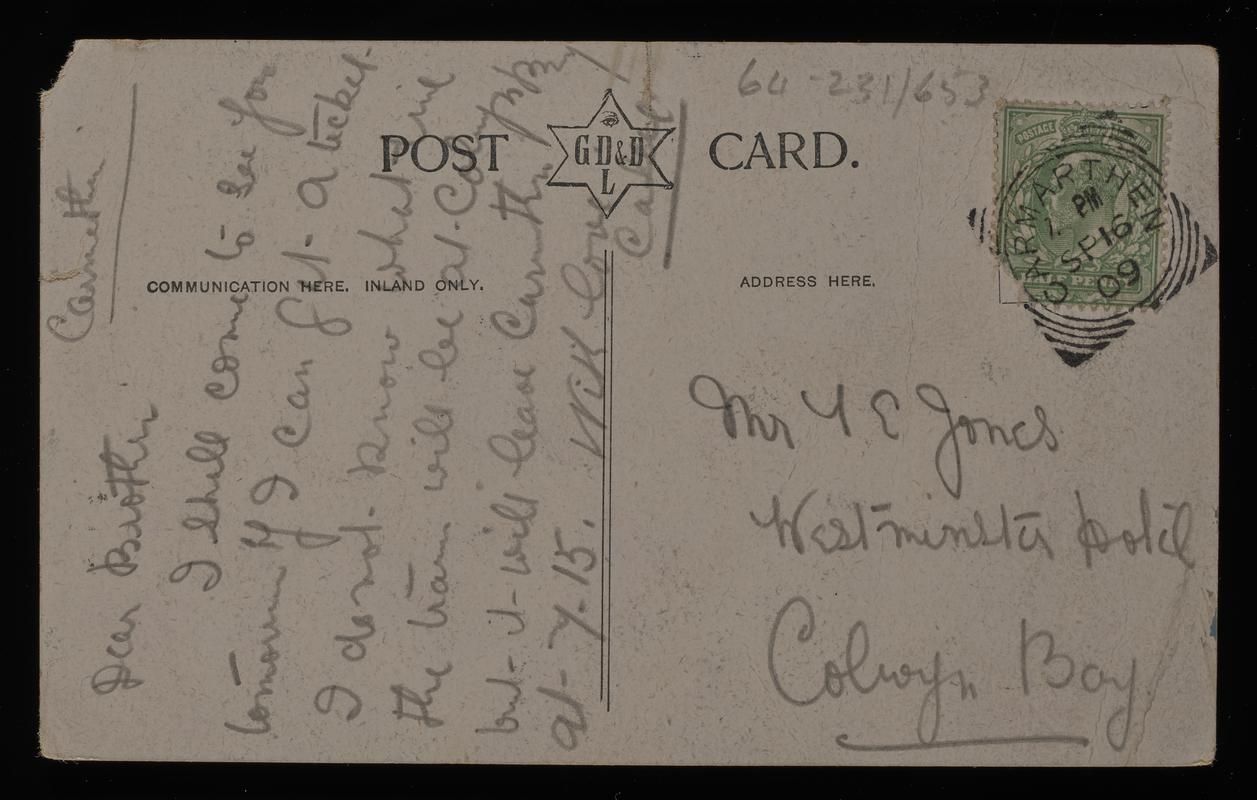 64-231/653
POST CARD.
G D & D
L
COMMUNICATION HERE. INLAND ONLY.
ADDRESS HERE.
POSTAGE
CARMARTHEN
PM
SP 16
09
Carmarthen
Dear Brother
I shall come to see you
tomorrow if I can get a ticket.
I do not know what time
the train will be at Colwyn Bay
but it will leave Carmarthen
at 7.15. With Love
Mr T E Jones
Westminster Hotel
Colwyn Bay